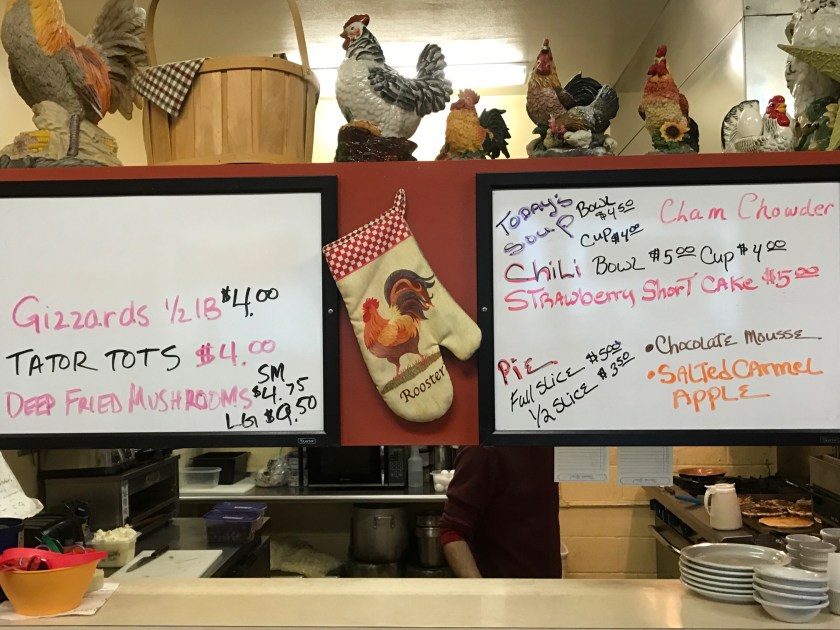 Gizzards 1/2 lB $4.00
TATOR TOTS $4.00
DEEP FRIED MUSHROOMS SM $4.75
LG $9.50
Rooster
TODAY'S SOUP BOWL $4.50
CUP $4.00
Cham Chowder
CHiLi BOWL $5.00 CUP $4.00
STRAWBERRY SHORT CAKE $5.00
PiE
Full SLICE $5.00
1/2 SLICE $3.50
•CHOCOLATE MOUSSE
•SALTED CARMEL APPLE